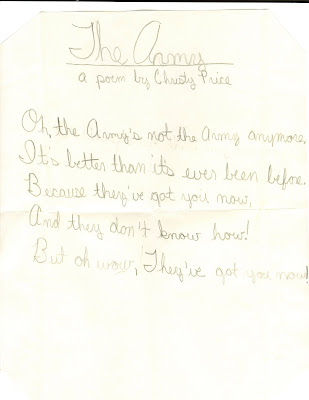 The Army
a poem by Christy Price
Oh, the Army's not the Army anymore,
It's better than it's ever been before.
Because they've got you now,
And they don't know how!
But oh wow, They've got you now!